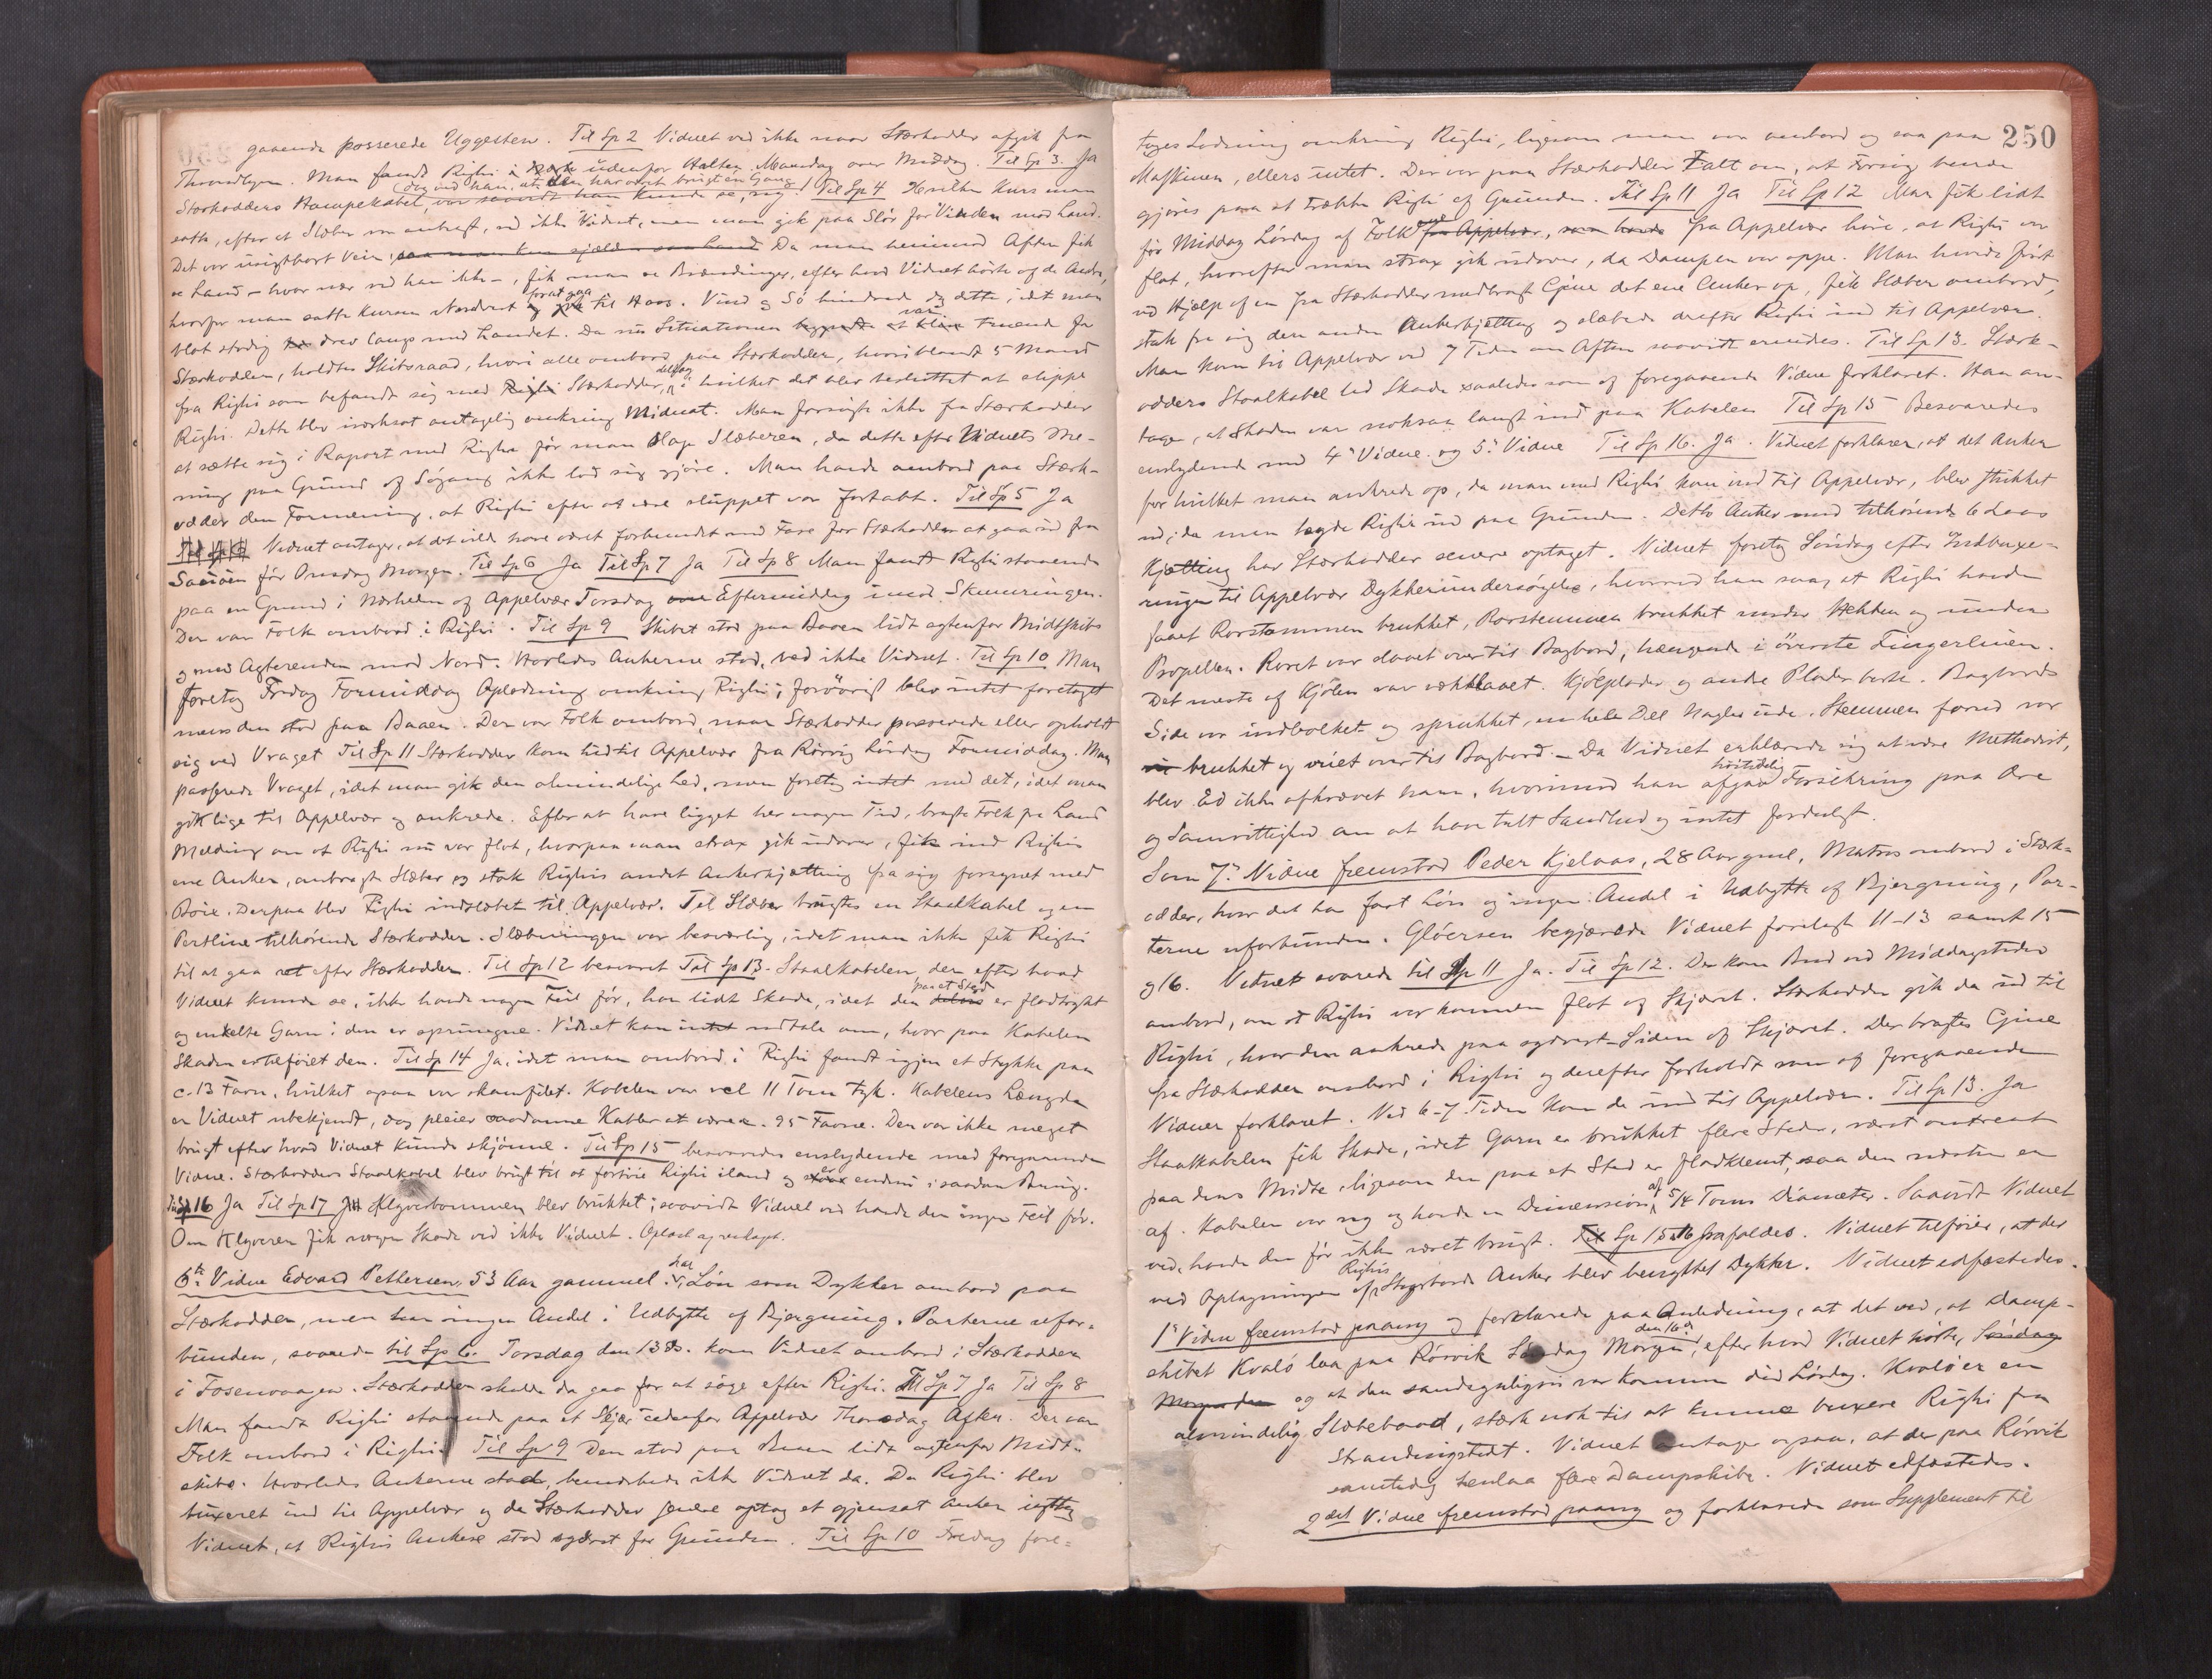 gaaende passerede Uggesten. Til Sp 2 Vidnet ved ikke naar Stærkodder afgik fra
Throndhjem. Man fandt Righi i udenfor Halten Mandag over Middag. Til Sp 3. Ja
dog ved han, at den har været brugt en Gang
Stærkodders Hampekabel, var saavidt han kunde se, ny. Til Sp 4 Hvilken Kurs man
satte, efter at Slæber var ombragt, ved ikke Vidnet, men man gik paa Slör for Vinden mod Land.
Det var usigtbart Veir, Da man henimod Aften fik
se Land – hvor nær ved han ikke –, fik man se Brændinger, efter hvad Vidnet hörte af de Andre,
hvorfor man satte Kursen Nordvest forat gaa til Havs. Vind og Sö hindrede dog dette, idet man
blot stadig drev langs med Landet. Da nu Situationen var truende for
Stærkodder, holdtes Skibsraad, hvori alle ombord paa Stærkodder, hvoriblandt 5 Mand
fra Righi som befandt sig med Stærkodder, deltog, i hvilket det blev besluttet at slippe
Righi. Dette blev iværksat antagelig omkring Midnat. Man forsögte ikke fra Stærkodder
at sætte sig i Raport med Righi för man slap Slæberen, da dette efter Vidnets Me-
ning paa Grund af Sögang ikke lod sig gjöre. Man havde ombord paa Stærk-
odder den Formening, at Righi efter at være sluppet var fortabt. Til Sp 5 Ja
Vidnet antager, at det vilde have været forbundet med Fare for Stærkodder at gaa ud fra
för Onsdag Morgen. Til Sp 6 Ja Til Sp 7 Ja Til Sp 8 Man fandt Righi staaende
paa en Grund i Nærheden af Appelvær Torsdag Eftermiddag imod Skumringen.
Der var Folk ombord i Righi. Til Sp 9 Skibet stod paa Baaen lidt agtenfor Midtskibs
og med Agterenden mod Nord. Hvorledes Ankerne stod, ved ikke Vidnet. Til Sp 10 Man
foretog Fredag Formiddag Oplodning omkring Righi; forövrigt blev intet foretaget
mens den stod paa Baaen. Der var Folk ombord, naar Stærkodder passerede eller opholdt
sig ved Vraget Til Sp 11 Stærkodder kom hid til Appelvær fra Rörvig Lördag Formiddag. Man
passerede Vraget, idet man gik den almindelige Led, men foretog intet med det, idet man
gik lige til Appelvær og ankrede. Efter at have ligget her nogen Tid, bragte Folk fra Land
Melding om at Righi nu var flot, hvorpaa man strax gik udover, fik ind Righis
ene Anker, ombragte Slæber og stak Righis andet Ankerkjætting fra sig forsynet med
Böie. Derpaa blev Righi indslæbet til Appelvær. Til Slæber brugtes en Staalkabel og en
Pertline tilhörende Stærkodder. Slæbningen var besværlig, idet man ikke fik Righi
til at gaa ret efter Stærkodder. Til Sp 12 besvaret Til Sp 13. Staalkabelen, der efter hvad
Vidnet kunde se, ikke havde nogen Feil för, har lidt Skade, idet den paa et Sted er fladtrykt
og enkelte Garn i den er sprungne. Vidnet kan intet udtale om, hvor paa Kabelen
Skaden er tilföiet den. Til Sp 14 Ja, idet man ombord i Righi fandt igjen et Stykke paa
c. 13 Favn, hvilket ogsaa var skamfilet. Kabelen var vel 11 Tom tyk. Kabelens Længde
er Vidnet ubekjendt, dog pleier saadanne Kabler at være c. 95 Favne. Den var ikke meget
brugt efter hvad Vidnet kunde skjönne. Til Sp 15 besvaredes enslydende med foregaaende
Vidne. Stærkodders Staalkabel blev brugt til at fortöie Righi iland og er endnu i saadan Brug.
Til Sp 16 Ja Til Sp 17 Klyverbommen blev brukket; saavidt Vidnet ved havde den ingen Feil för.
Om Klyveren fik nogen Skade ved ikke Vidnet. Oplæst og vedtaget.
6te Vidne Edvard Pettersen, 53 Aar gammel. har Lön som Dykker ombord paa
Stærkodder, men har ingen Andel i Udbytte af Bjergning. Parterne ufor-
bunden, svarede til Sp 6. Torsdag den 13ds. kom Vidnet ombord i Stærkodder
i Fosenvaagen. Stærkodder skulde da gaa for at söge efter Righi. Til Sp 7 Ja Til Sp 8
Man fandt Righi staaende paa et Skjær udenfor Appelvær Thorsdag Aften. Der var
Folk ombord i Righi. Til Sp 9 Den stod paa Baaen lidt agtenfor Midt-
skibs. Hvorledes Ankerne stod, bemærkede ikke Vidnet da. Da Righi blev
buxeret ind til Appelvær og da Stærkodder senere optog et gjensat Anker iagttog
Vidnet, at Righis Ankere stod sydvest for Grunden. Til Sp 10 Fredag fore-
250
toges Lodning omkring Righi, ligesom man var ombord og saa paa
Maskinen, ellers intet. Der var paa Stærkodder Talt om, at Forsög burde
gjöres paa at trække Righi af Grunden. Til Sp 11 Ja Til Sp 12 Man fik lidt
för Middag Lördag af Folk fra Appelvær höre, at Righi var
flot, hvorefter man strax gik udover, da Dampen var oppe. Man hivde först
ved Hjælp af en fra Stærkodder medbragt Gjine det ene Anker op, fik Slæber ombord,
stak fra sig den anden Ankerkjætting og slæbede derefter Righi ind til Appelvær.
Man kom til Appelvær ved 7 Tiden om Aften saavidt erindres. Til Sp 13. Stærk-
odders Staalkabel led Skade saaledes som af foregaaende Vidne forklaret. Han an-
tager, at Skaden var noksaa langt ind paa Kabelen Til Sp 15 Besvaredes
enslydende med 4de Vidne og 5te Vidne Til Sp 16. Ja. Vidnet forklarer, at det Anker
for hvilket man ankrede op, da man med Righi kom ind til Appelvær, blev stukket
ud, da man lagde Righi ind paa Grunden. Dette Anker med tilhörende 6 Laas
Kjætting har Stærkodder senere optaget. Vidnet foretog Söndag efter Indbuxe-
ringen til Appelvær Dykkerundersögelse, hvorved han saa, at Righi havde
faaet Rorstammen brukket, Rorstevnen brukket under Hækken og under
Propellen. Roret var slaaet over til Bagbord, hængende i överste Fingerlinen.
Det meste af Kjölen var vækslaaet. Kjölplader og andre Plader borte. Bagbords
Side var indbulket og sprukket, en hele Del Nagler ude. Stevnen forud var
brukket og vriet over til Bagbord. – Da Vidnet erklærede sig at være Methodist,
blev Ed ikke afkrævet ham, hvorimod han afgav höitidelig Forsikring paa Ære
og Samvittighed om at have talt Sandhed og intet fordulgt.
Som 7de Vidne fremstod Peder Kjelaas, 28 Aar gml, Matros ombord i Stærk-
odder, hvor det har fast Lön og ingen Andel i Udbytte af Bjergning, Par-
terne uforbunden. Glöersen begjærede Vidnet forelagt 11–13 samt 15
og 16. Vidnet svarede til Sp 11 Ja. Til Sp 12. Der kom Bud ved Middagstider
ombord, om at Righi var kommen flot af Skjæret. Stærkodder gik da ud til
Righi, hvor den ankrede paa sydvest-Siden af Skjæret. Der bragtes Gjine
fra Stærkodder ombord i Righi og derefter forholdt som af foregaaende
Vidner forklaret. Ved 6–7 Tiden kom de ind til Appelvær. Til Sp 13. Ja
Staalkabelen fik Skade, idet Garn er brukket flere Steder, værst omtrent
paa dens Midte, ligesom den paa et Sted er fladklemt, saa den næsten er
af. Kabelen var ny og havde en Dimension af 5/4 Toms Diameter. Saavidt Vidnet
ved, havde den för ikke været brugt. Til Sp 15 & 16 frafaldes. Vidnet tilföier, at der
ved Optagningen af Righis Styrbords Anker blev benyttet Dykker. Vidnet edfæstedes.
1ste Vidne fremstod paany og forklarede paa Anledning, at det ved, at Damp-
skibet Kvalö laa paa Rörvik Söndag Morgen den 16de, efter hvad Vidnet hörte,
og at den sandsynligvis var kommen did Lördag. Kvalö er en
almindelig Slæbebaad, stærk nok til at kunne buxere Righi fra
Strandingstedet. Vidnet antager ogsaa, at der paa Rörvik
samtidig henlaa flere Dampskibe. Vidnet edfæstedes.
2det Vidne fremstod paany og forklarede som Supplement til